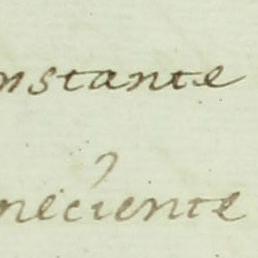 nstante
neciente